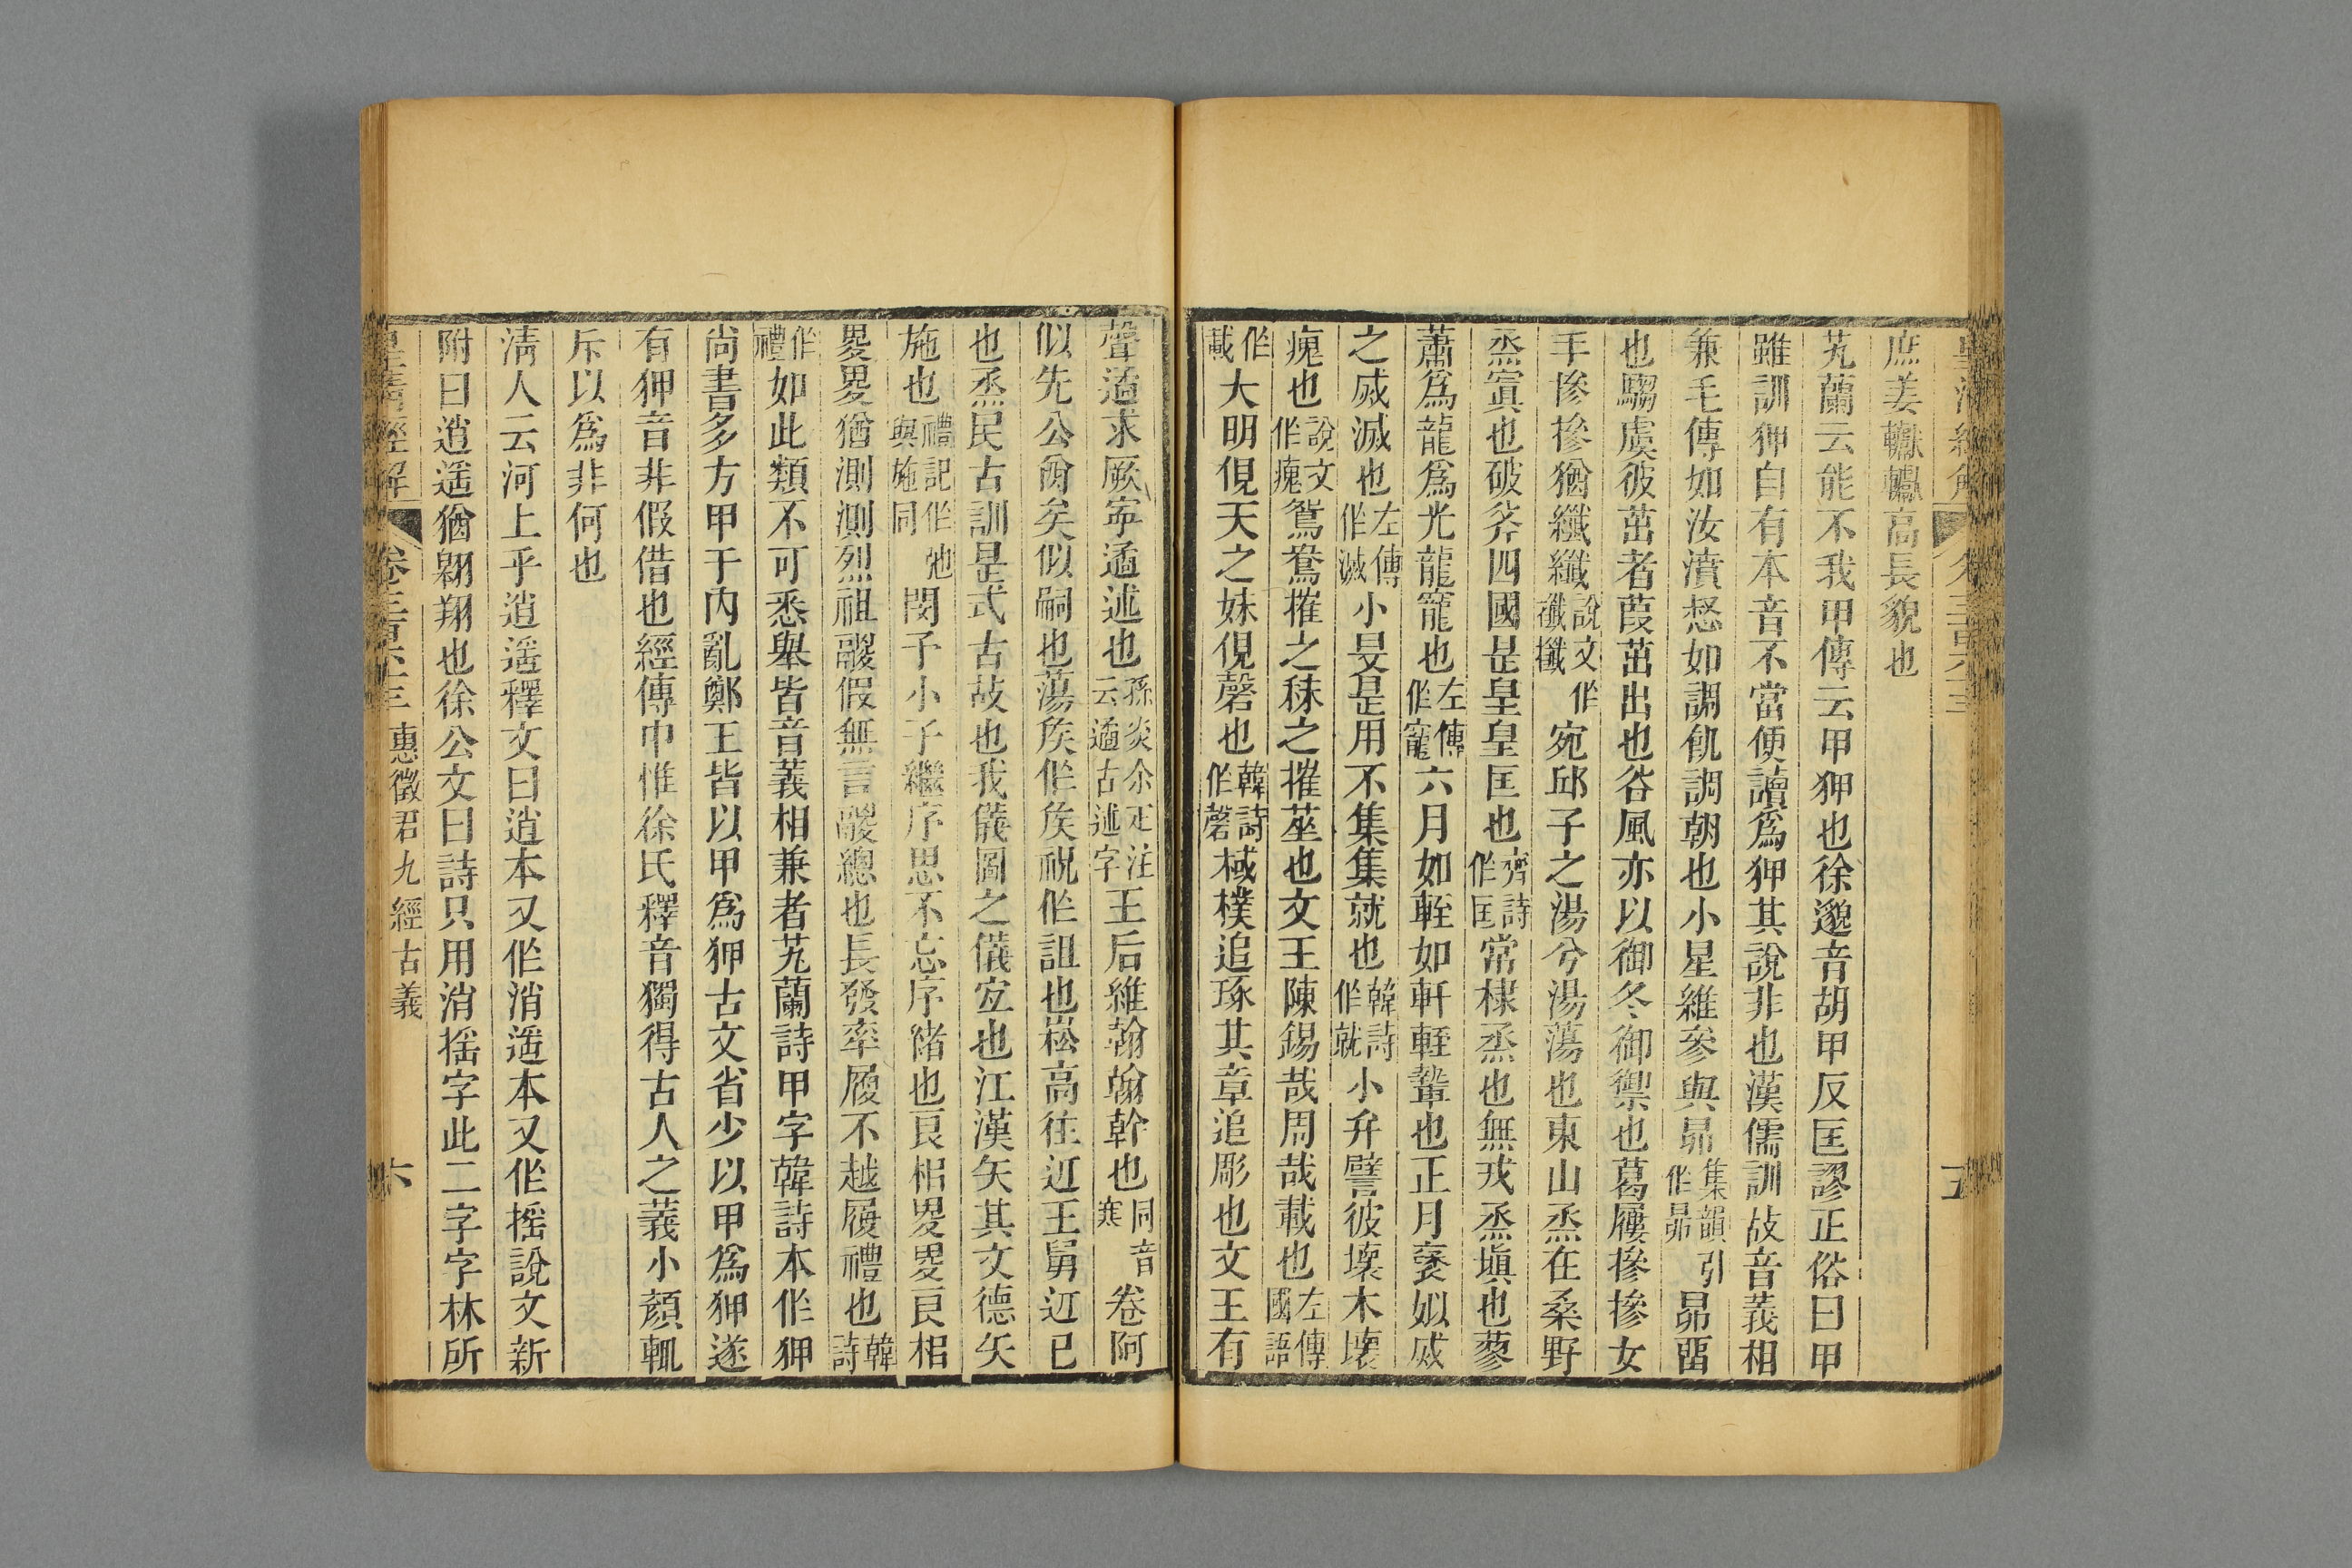 庶姜轙轙高長貌也
芄蘭云能不我甲傳云甲狎也徐邈音胡甲反匡謬正俗曰甲
雖訓狎自有本音不當便讀為狎其說非也漢儒訓故音義相
兼毛傳如汝濆惄如調飢調朝也小星維參與昴集韻引作昴昴畱
也騶虞彼茁者葭茁出也谷風亦以御冬御禦也葛屨摻摻女
手摻摻猶纖纖說文作攕攕宛邱子之湯兮湯蕩也東山烝在桑野
烝寘也破斧四國是皇皇匡也齊詩作匡常棣烝也無戎烝塡也蓼
蕭為龍為光龍寵也左傳作寵六月如輊如軒輊摯也正月襃姒烕
之烕滅也左傳作滅小旻是用不集集就也韓詩作就小弁譬彼壞木壞
瘣也說文作瘣鴛鴦摧之秣之摧莝也文王陳錫哉周哉載也左傳國語
作載大明俔天之妹俔磬也韓詩作磬棫樸追琢其章追彫也文王有
聲遹求厥寧遹述也孫炎尒疋注云遹古述字王后維翰翰幹也同音寒卷阿
似先公酋矣似嗣也蕩矦作矦祝作詛也崧高往辺王舅辺已
也烝民古訓是式古故也我儀圖之儀宜也江漢矢其文德矢
施也禮記作弛與施同閔子小子繼序思不忘序緒也良耜畟畟良耜
畟畟猶測測烈祖鬷假無言鬷總也長發率履不越履禮也韓詩
作禮如此類不可悉舉皆音義相兼者芄蘭詩甲字韓詩本作狎
尚書多方甲于內亂鄭王皆以甲為狎古文省少以甲為狎遂
有狎音非假借也經傳中惟徐氏釋音獨得古人之義小顏輒
斥以為非何也
淸人云河上乎逍遥釋文曰逍本又作消遥本又作搖說文新
附曰逍遥猶翺翔也徐公文曰詩只用消搖字此二字字林所
皇淸經解 卷三百六十三 惠徵君九經古義 六